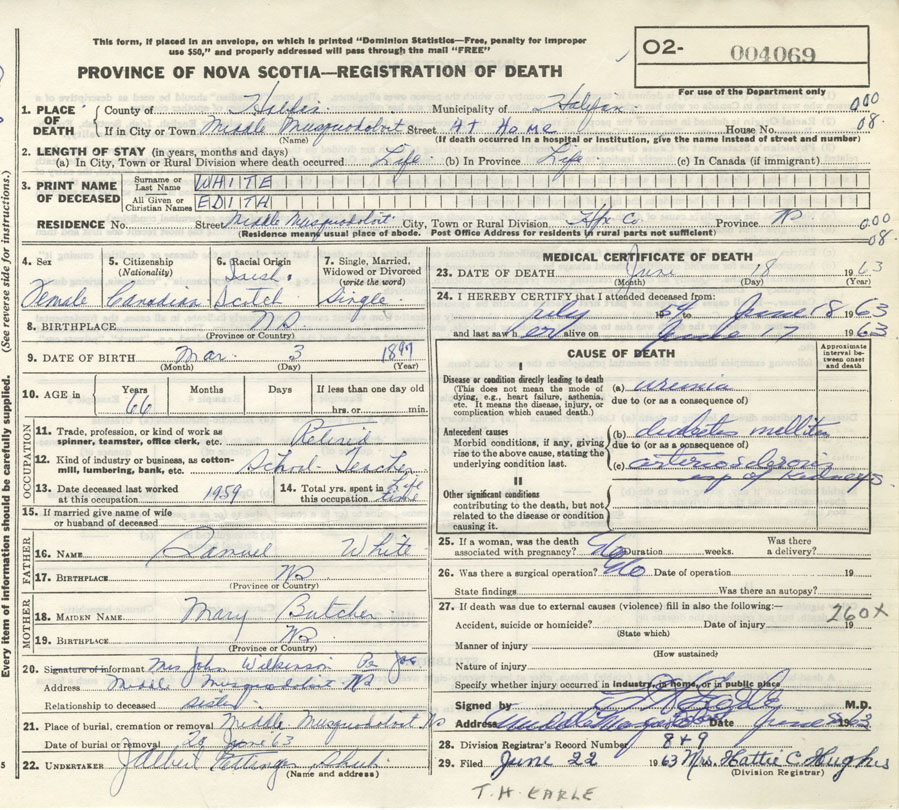 This form, if placed in an envelope, on which is printed "Dominion Statistics—Free, penalty for improper
use $50," and properly addressed will pass through the mail "FREE"
PROVINCE OF NOVA SCOTIA—REGISTRATION OF DEATH
O2- 004069
For use of the Department only
1. PLACE OF DEATH { County of Halifax Municipality of Halifax 000
If in City or Town Middle Musquodoboit Street At Home House No. 08
(Name) (If death occurred in a hospital or institution, give the name instead of street and number)
2. LENGTH OF STAY (in years, months and days)
(a) In City, Town or Rural Division where death occurred Life (b) In Province Life (c) In Canada (if immigrant)
3. PRINT NAME OF DECEASED
Surname or Last Name WHITE
All Given or Christian Names EDITH
RESIDENCE No. Street Middle Musquodoboit City, Town or Rural Division Hfx Co. Province NS 000
(Residence means usual place of abode. Post Office Address for residents in rural parts not sufficient) 08
4. Sex 5. Citizenship (Nationality) 6. Racial Origin 7. Single, Married, Widowed or Divorced (write the word)
Female Canadian Irish, Scotch Single
8. BIRTHPLACE NS
(Province or Country)
9. DATE OF BIRTH Mar. 3 1897
(Month) (Day) (Year)
10. AGE in Years Months Days If less than one day old
66 hrs. or min.
OCCUPATION
11. Trade, profession, or kind of work as spinner, teamster, office clerk, etc. Retired
12. Kind of industry or business, as cotton-mill, lumbering, bank, etc. School Teacher
13. Date deceased last worked at this occupation 1959 14. Total yrs. spent in this occupation Life time
15. If married give name of wife or husband of deceased
FATHER
16. NAME Samuel White
17. BIRTHPLACE NS
(Province or Country)
MOTHER
18. MAIDEN NAME Mary Butcher
19. BIRTHPLACE NS
(Province or Country)
20. Signature of informant Mrs John Wilkinson Per
Address Middle Musquodoboit NS
Relationship to deceased sister
21. Place of burial, cremation or removal Middle Musquodoboit NS
Date of burial or removal 20 June 63
22. UNDERTAKER
(Name and address)
MEDICAL CERTIFICATE OF DEATH
23. DATE OF DEATH June 18 1963
(Month) (Day) (Year)
24. I HEREBY CERTIFY that I attended deceased from:
July 1954 to June 18 1963
and last saw her alive on June 17 1963
CAUSE OF DEATH
Approximate interval between onset and death
I
Disease or condition directly leading to death
(This does not mean the mode of dying, e.g., heart failure, asthenia, etc. It means the disease, injury, or complication which caused death.)
(a) uremia
due to (or as a consequence of)
Antecedent causes
Morbid conditions, if any, giving rise to the above cause, stating the underlying condition last.
(b) diabetes mellitus
due to (or as a consequence of)
(c) arteriosclerosis
esp of kidneys
II
Other significant conditions
contributing to the death, but not related to the disease or condition causing it.
25. If a woman, was the death associated with pregnancy? No Duration weeks. Was there a delivery?
26. Was there a surgical operation? No Date of operation 19
State findings Was there an autopsy?
27. If death was due to external causes (violence) fill in also the following:— 260x
Accident, suicide or homicide? Date of injury 19
(State which)
Manner of injury
(How sustained)
Nature of injury
Specify whether injury occurred in industry, in home, or in public place
Signed by M.D.
Address Middle Musquodoboit Date June 1963
28. Division Registrar's Record Number 849
29. Filed June 22 1963 Mrs. Hattie C. Hughes
(Division Registrar)
T.H EARLE
(See reverse side for instructions.)
Every item of information should be carefully supplied.
5